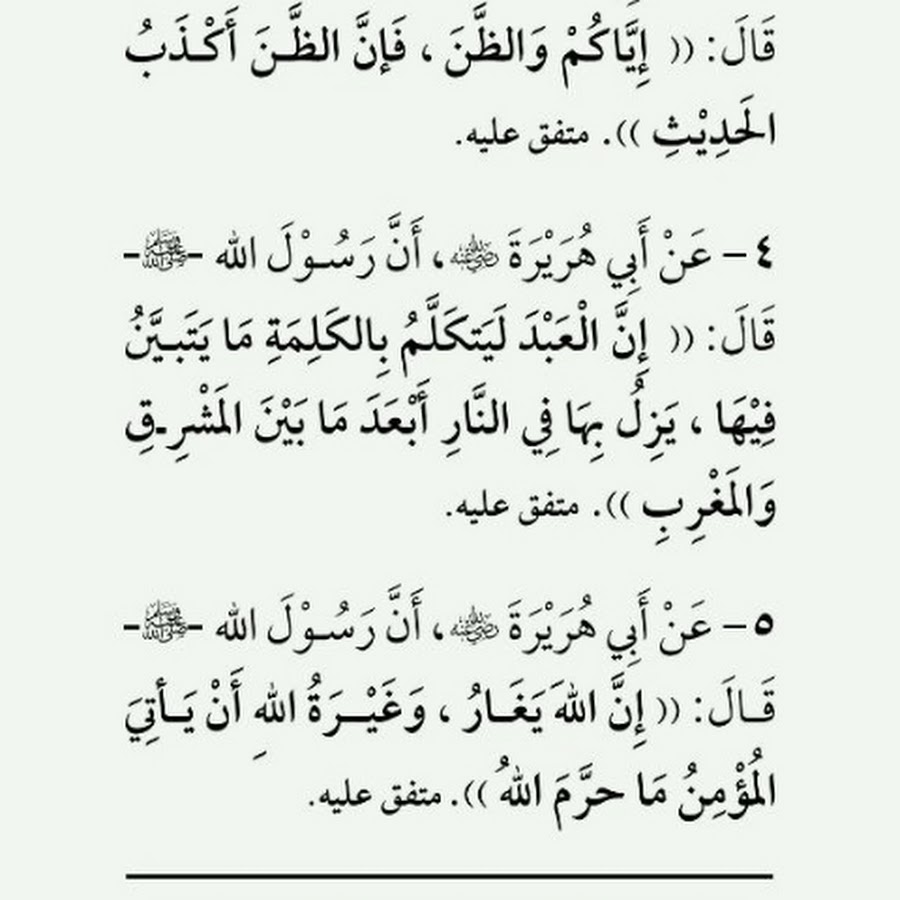 قَالَ: (( إِيَّاكُمْ وَالظَّنَ ، فَإِنَّ الظَّـنَ أَكْـذَبُ
الحَدِيْثِ )). متفق عليه.
٤ - عَنْ أَبِي هُرَيْرَةَ رضي الله عنه، أَنَّ رَسُـوْلَ الله -ﷺ-
قَالَ: (( إِنَّ الْعَبْدَ لَيَتكَلَّمُ بِالكَلِمَةِ مَا يَتَبـيَّنُ
فِيْهَا ، يَزِلُ بِهَا فِي النَّارِ أَبْعَدَ مَا بَيْنَ المَشْرِـقِ
وَالمَغْرِبِ )). متفق عليه.
٥ - عَنْ أَبِي هُرَيْرَةَ رضي الله عنه، أَنَّ رَسُـوْلَ الله -ﷺ-
قَـالَ: (( إِنَّ اللهَ يَغَـارُ ، وَغَيْـرَةُ اللهِ أَنْ يَـأتِيَ
المُؤْمِنُ مَا حرَّمَ اللهُ )). متفق عليه.